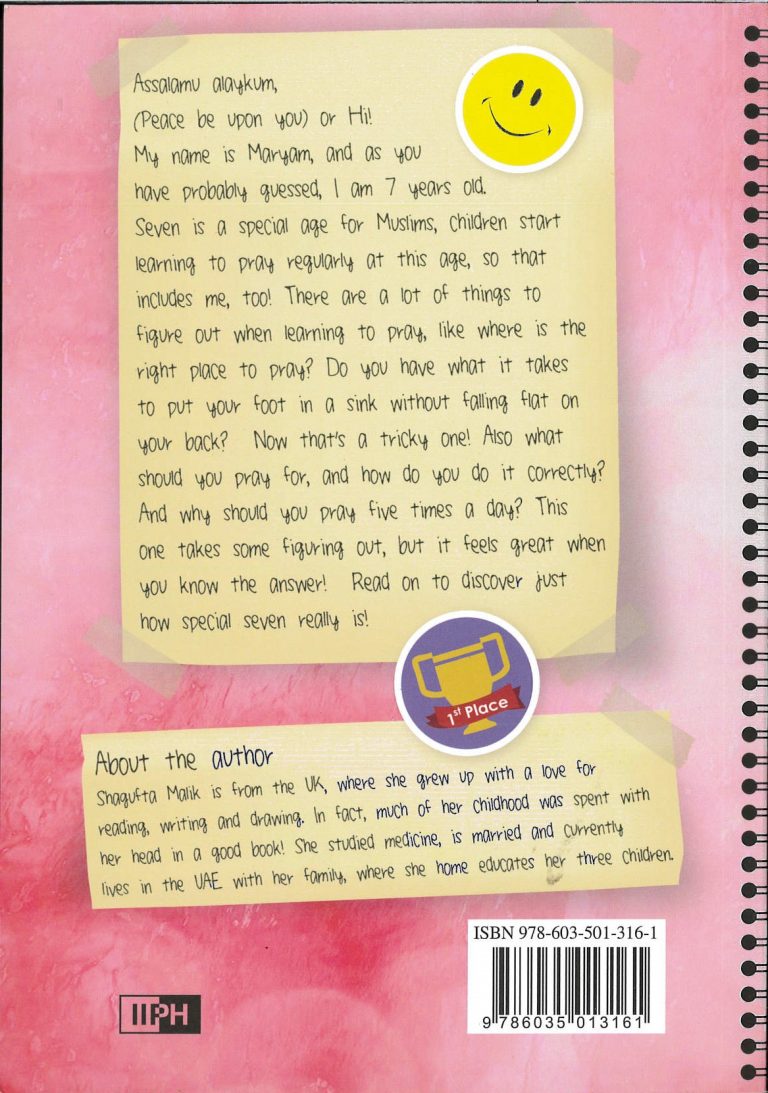 Assalamu alaykum,
(Peace be upon you) or Hi!
My name is Maryam, and as you
have probably guessed, I am 7 years old.
Seven is a special age for Muslims, children start
learning to pray regularly at this age, so that
includes me, too! There are a lot of things to
figure out when learning to pray, like where is the
right place to pray? Do you have what it takes
to put your foot in a sink without falling flat on
your back? Now that's a tricky one! Also what
should you pray for, and how do you do it correctly?
And why should you pray five times a day? This
one takes some figuring out, but it feels great when
you know the answer! Read on to discover just
how special seven really is!
1st Place
About the author
Shagufta Malik is from the UK, where she grew up with a love for
reading, writing and drawing. In fact, much of her childhood was spent with
her head in a good book! She studied medicine, is married and currently
lives in the UAE with her family, where she home educates her three children.
ISBN 978-603-501-316-1
9 786035 013161
IIPH